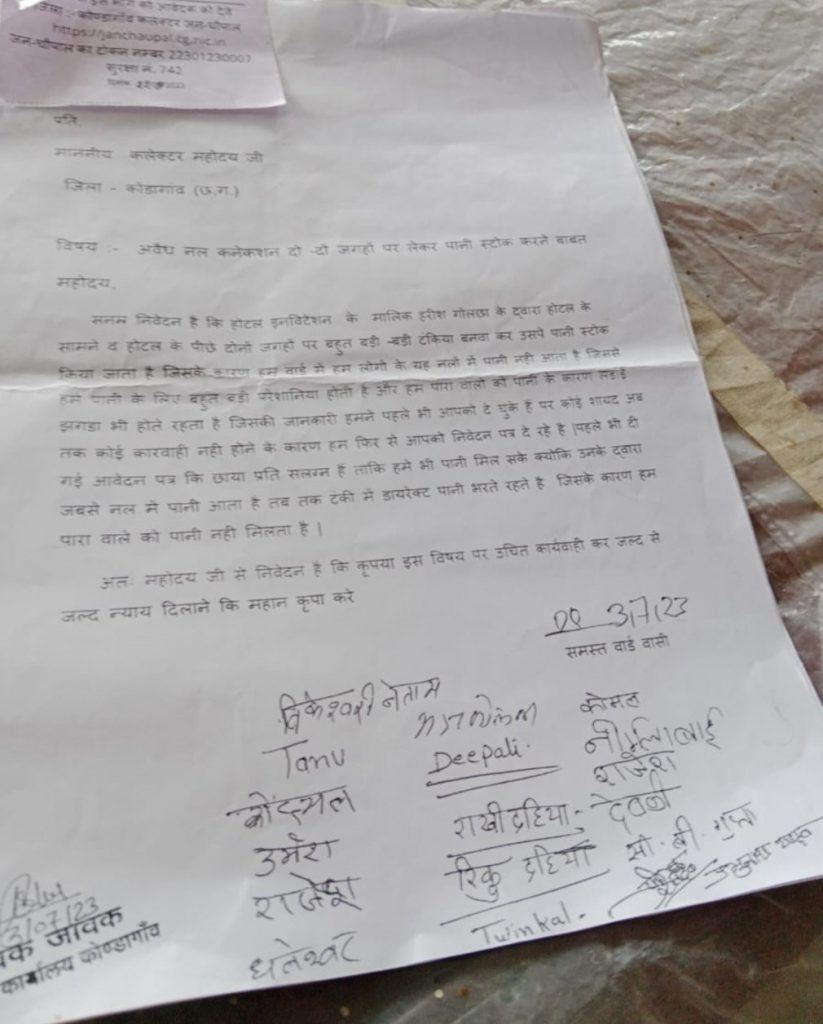 इस भाग को आवेदक को देवे
जिला :- कोण्डागाँव कलेक्टर जन-चौपाल
https://janchaupal.cg.nic.in
जन-चौपाल का टोकन नम्बर 22301230007
सुरक्षा नं. 742
प्रति,
माननीय कलेक्टर महोदय जी
जिला - कोंडागाँव (छ.ग.)
विषय :- अवैध नल कनेकशन दो -दो जगहों पर लेकर पानी स्टोक करने बाबत
महोदय,
सनम्र निवेदन है कि होटल इनविटेशन के मालिक हरीश गोलछा के द्वारा होटल के
सामने व होटल के पीछे दोनों जगहों पर बहुत बड़ी -बड़ी टंकिया बनवा कर उसपे पानी स्टोक
किया जाता है जिसके कारण हम वार्ड में हम लोगो के यह नलों में पानी नही आता है जिससे
हमे पानी के लिए बहुत बड़ी परेशानिया होती है और हम पारा वालो को पानी के कारण लड़ाई
झगडा भी होते रहता है जिसकी जानकारी हमने पहले भी आपको दे चुके है पर कोई शायद अब
तक कोई कारवाही नही होने के कारण हम फिर से आपको निवेदन पत्र दे रहे है |पहले भी दी
गई आवेदन पत्र कि छाया प्रति सलग्न है ताकि हमे भी पानी मिल सके क्योकि उनके द्वारा
जबसे नल में पानी आता है तब तक टंकी में डायरेक्ट पानी भरते रहते है जिसके कारण हम
पारा वाले को पानी नही मिलता है |
अतः महोदय जी से निवेदन है कि कृपया इस विषय पर उचित कार्यवाही कर जल्द से
जल्द न्याय दिलाने कि महान कृपा करे
3/7/23
समस्त वार्ड वासी
नेताम
कोमल
Tanu
Deepali.
राजेश
राखी दहिया
उमेश
रिंकु दहिया
सी. बी. गुप्ता
राजेश
Twinkal.
धनेश्वर
3/07/23
जावक
कार्यालय कोण्डागाँव